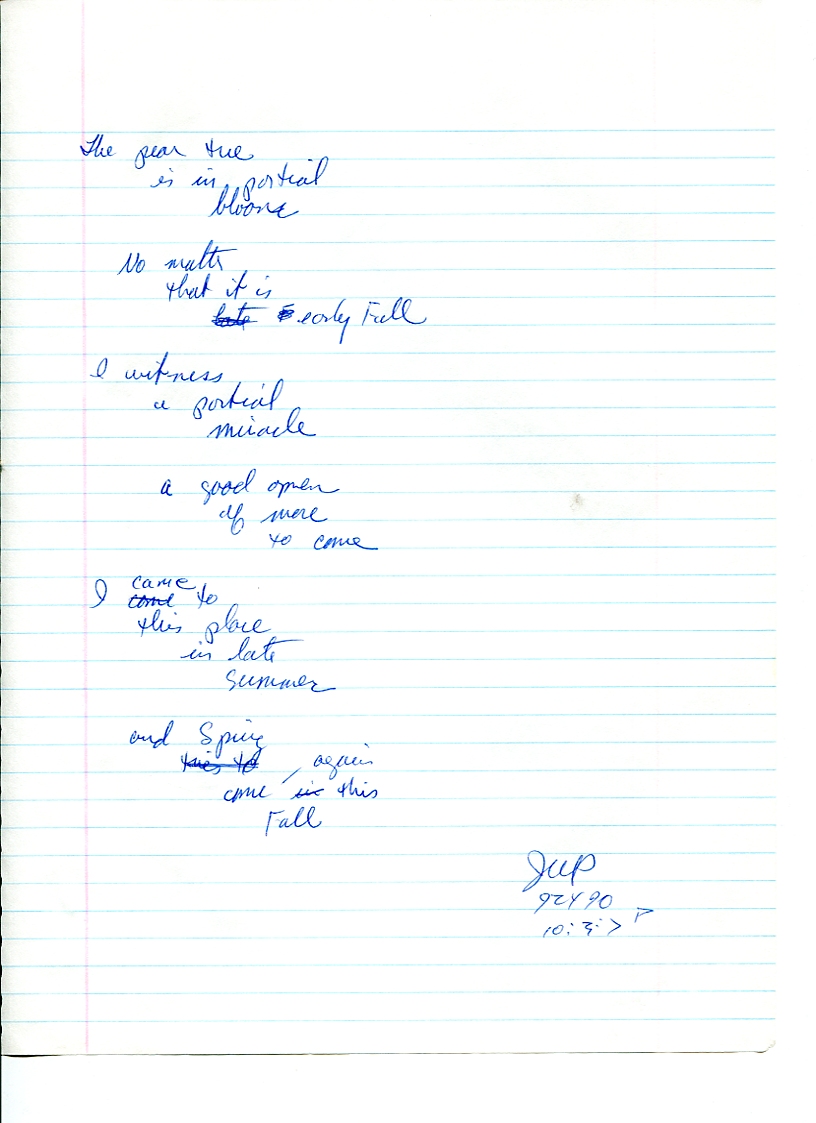 The pear tree
is in partial
bloom
No matter
that it is
late early Fall
I witness
a partial
miracle
a good omen
of more
to come
came
I come to
this place
in late
summer
and Spring
tries to again
come in this
Fall
92490